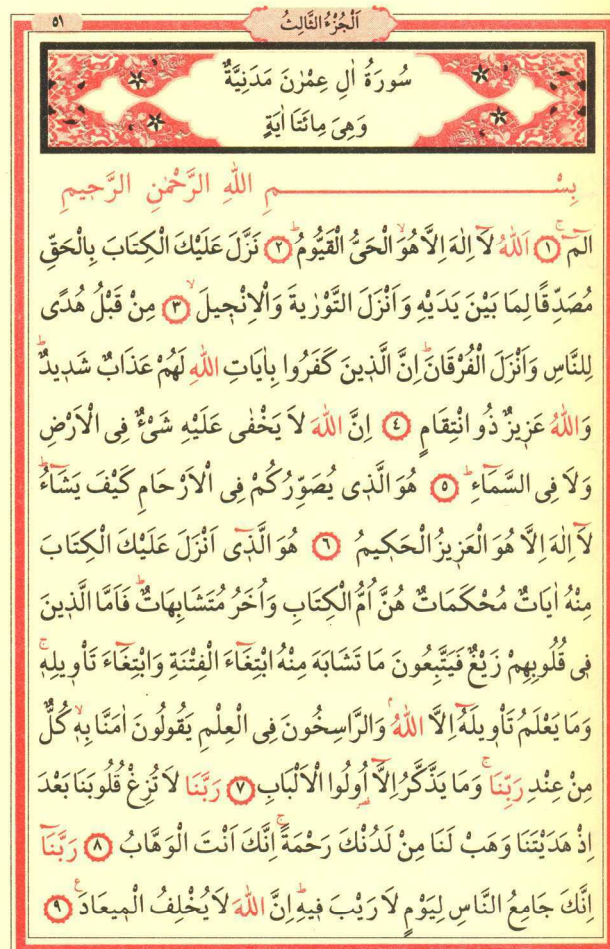 اَلْجُزْءُ الثَّالِثُ
٥١
سُورَةُ اٰلِ عِمْرٰنَ مَدَنِيَّةٌ
وَهِيَ مِائَتَا اٰيَةٍ
بِسْمِ اللهِ الرَّحْمٰنِ الرَّحيمِ
الٓمٓۚ ﴿١﴾ اَللهُ لَٓا اِلٰهَ اِلَّا هُوَۙ الْحَيُّ الْقَيُّومُۜ ﴿٢﴾ نَزَّلَ عَلَيْكَ الْكِتَابَ بِالْحَقِّ
مُصَدِّقًا لِمَا بَيْنَ يَدَيْهِ وَاَنْزَلَ التَّوْرٰيةَ وَالْاِنْجيلَۙ ﴿٣﴾ مِنْ قَبْلُ هُدًى
لِلنَّاسِ وَاَنْزَلَ الْفُرْقَانَۜ اِنَّ الَّذينَ كَفَرُوا بِاٰيَاتِ اللهِ لَهُمْ عَذَابٌ شَديدٌۜ
وَاللهُ عَزيزٌ ذُو انْتِقَامٍ ﴿٤﴾ اِنَّ اللهَ لَا يَخْفٰى عَلَيْهِ شَيْءٌ فِى الْاَرْضِ
وَلَا فِى السَّمَٓاءِۜ ﴿٥﴾ هُوَ الَّذى يُصَوِّرُكُمْ فِى الْاَرْحَامِ كَيْفَ يَشَٓاءُۜ
لَٓا اِلٰهَ اِلَّا هُوَ الْعَزيزُ الْحَكيمُ ﴿٦﴾ هُوَ الَّذٓى اَنْزَلَ عَلَيْكَ الْكِتَابَ
مِنْهُ اٰيَاتٌ مُحْكَمَاتٌ هُنَّ اُمُّ الْكِتَابِ وَاُخَرُ مُتَشَابِهَاتٌۜ فَاَمَّا الَّذينَ
فى قُلُوبِهِمْ زَيْغٌ فَيَتَّبِعُونَ مَا تَشَابَهَ مِنْهُ ابْتِغَٓاءَ الْفِتْنَةِ وَابْتِغَٓاءَ تَأْويلِهۚ
وَمَا يَعْلَمُ تَأْويلَهُٓ اِلَّا اللهُۢ وَالرَّاسِخُونَ فِى الْعِلْمِ يَقُولُونَ اٰمَنَّا بِهۙ كُلٌّ
مِنْ عِنْدِ رَبِّنَاۚ وَمَا يَذَّكَّرُ اِلَّٓا اُولُوا الْاَلْبَابِ ﴿٧﴾ رَبَّنَا لَا تُزِغْ قُلُوبَنَا بَعْدَ
اِذْ هَدَيْتَنَا وَهَبْ لَنَا مِنْ لَدُنْكَ رَحْمَةًۚ اِنَّكَ اَنْتَ الْوَهَّابُ ﴿٨﴾ رَبَّنَٓا
اِنَّكَ جَامِعُ النَّاسِ لِيَوْمٍ لَا رَيْبَ فيهِۜ اِنَّ اللهَ لَا يُخْلِفُ الْميعَادَ۟ ﴿٩﴾